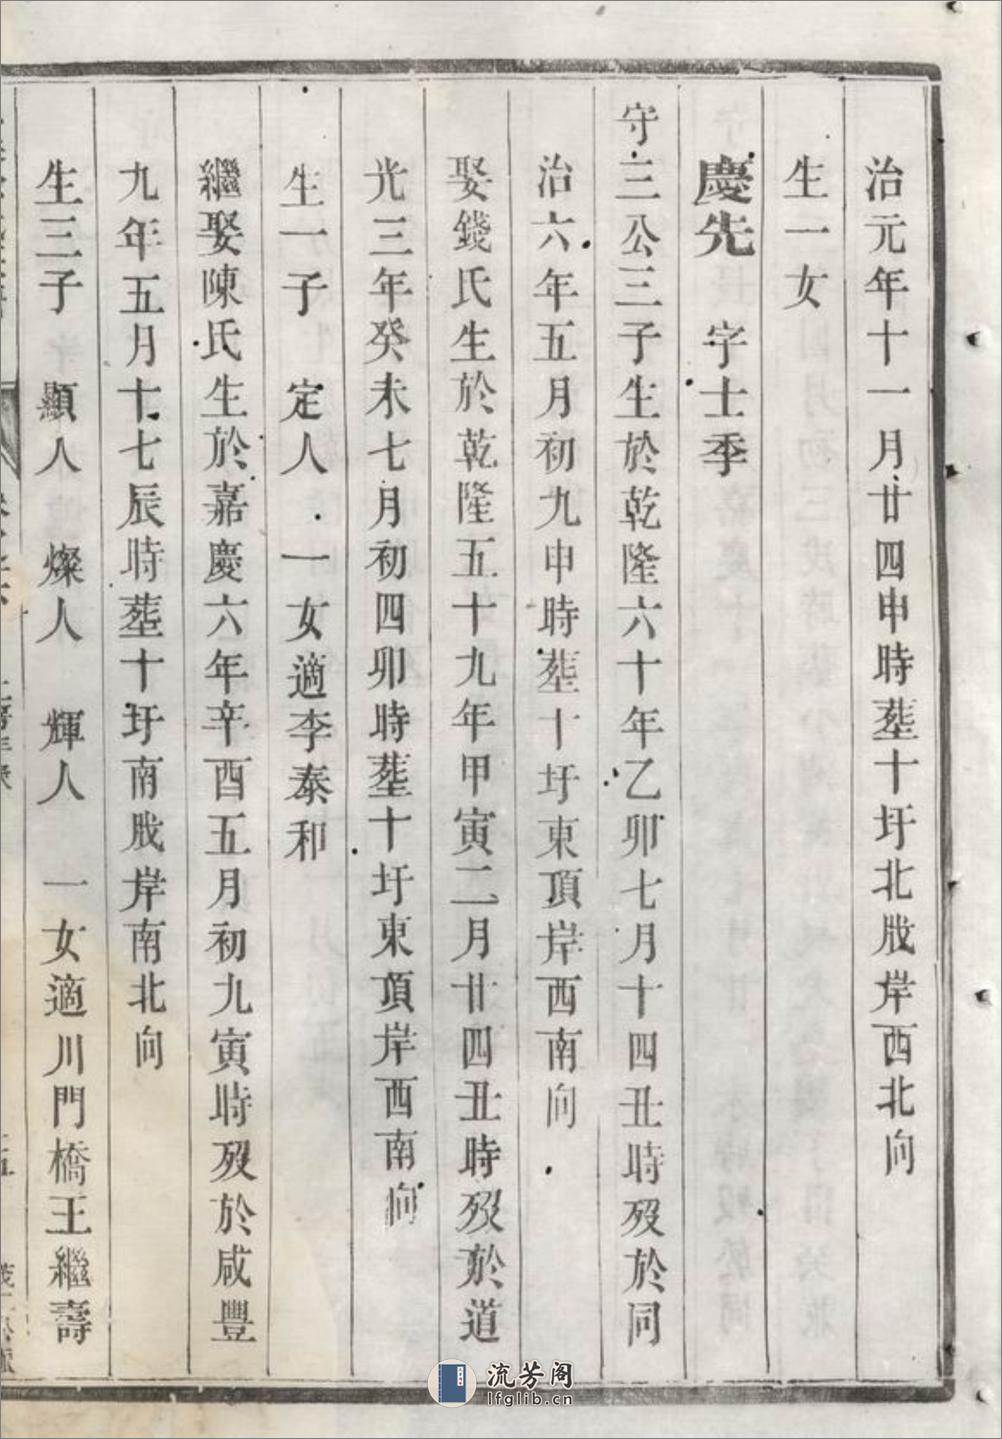 治元年十一月廿四申時塟十圩北戙岸西北向
生一女
慶先 字士季
守三公三子生於乾隆六十年乙卯七月十四丑時歿於同
治六年五月初九申時塟十圩東頂岸西南向
娶錢氏生於乾隆五十九年甲寅二月廿四丑時歿於道
光三年癸未七月初四卯時塟十圩東頂岸西南向
生一子 定人 一女適李泰和
繼娶陳氏生於嘉慶六年辛酉五月初九寅時歿於咸豐
九年五月十七辰時塟十圩南戙岸南北向
生三子 顯人 燦人 輝人 一女適川門橋王繼壽
流芳阁
lfglib.cn